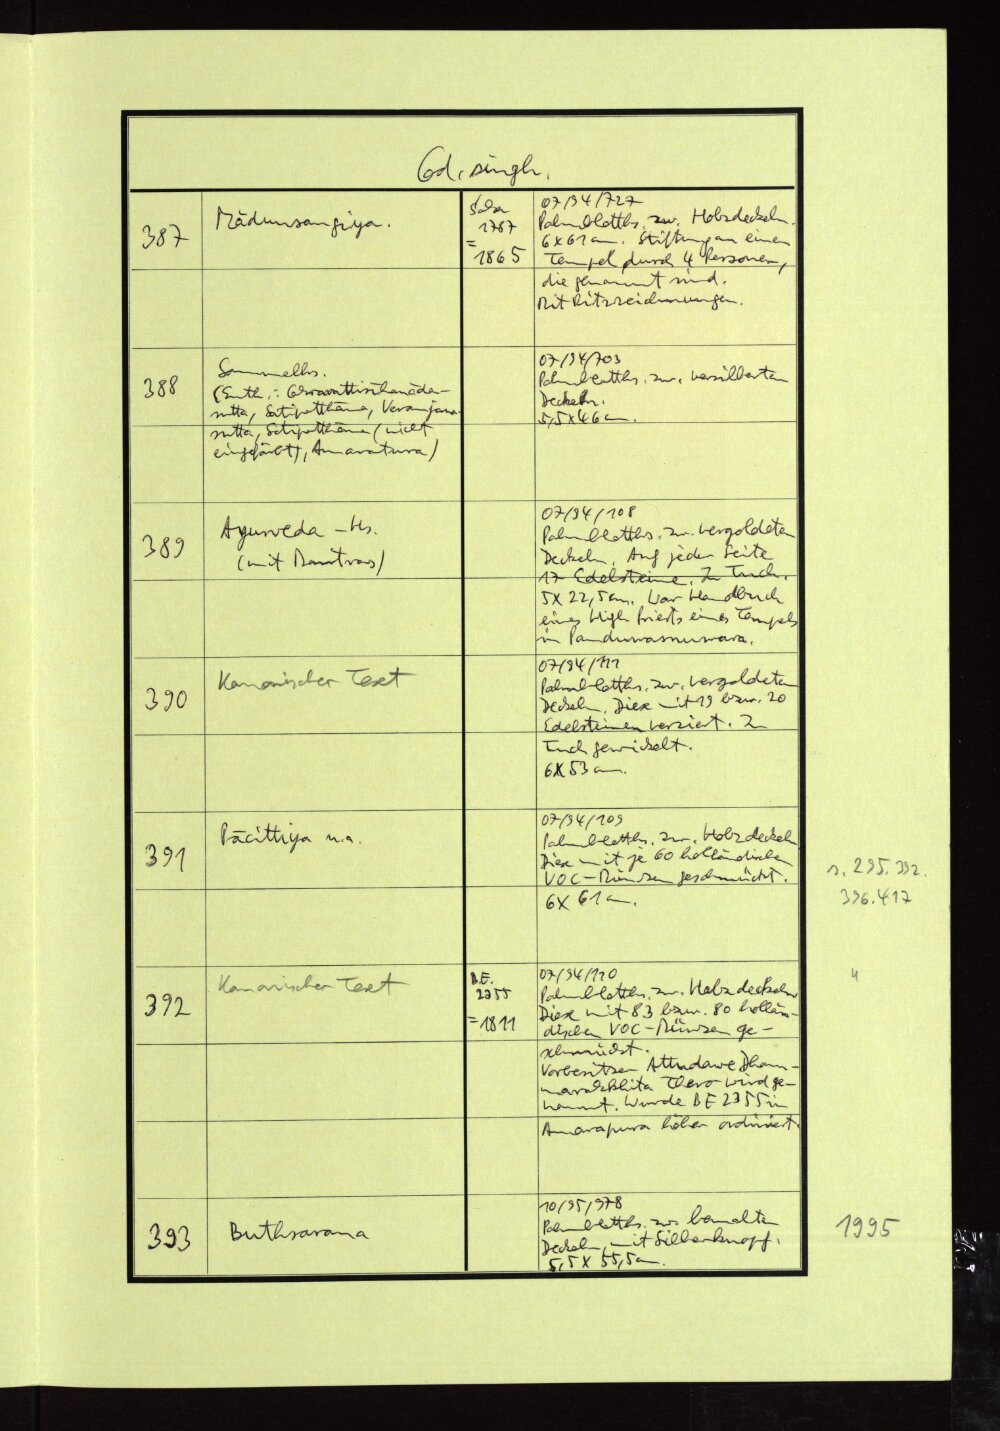 Cod. singh.
387
Mādunsangiya.
Saka
1787
=
1865
07/94/727
Palmblatths. zw. Holzdeckeln.
6x61 cm. Stiftung an einen
Tempel durch 4 Personen,
die genannt sind.
Mit Ritzzeichnungen.
388
Sammelhs.
sutta, Satipatthāna,
sutta, Satipatthāna (nicht
eingefärbt), Amaratura)
07/94/703
Palmblatths. zw. versilberten
Deckeln.
5,5x46 cm.
389
Ayurveda-Hs.
(mit Mantras)
07/94/108
Palmblatths. zw. vergoldeten
Deckeln. Auf jeder Seite
17 Edelsteine. In Tuch.
5x22,5 cm. War Handbuch
eines High Priests eines Tempels
in Panduwasnuwara.
390
Kanonischer Text
07/94/111
Palmblatths. zw. vergoldeten
Deckeln. Diese mit 19 bzw. 20
Edelsteinen verziert. In
Tuch gewickelt.
6x53 cm.
391
Pācittiya u.a.
07/94/109
Palmblatths. zw. Holzdeckeln
Diese mit je 60 holländischen
VOC-Münzen geschmückt.
6x61 cm.
s. 295. 392.
396. 417
392
Kanonischer Text
B.E.
2355
=1811
07/94/110
Palmblatths. zw. Holzdeckeln
Diese mit 83 bzw. 80 hollän-
dischen VOC-Münzen ge-
schmückt.
Vorbesitzer Attudawe Dham-
marakkhita Thero wird ge-
nannt. Wurde BE 2355 in
Amarapura höher ordiniert.
"
393
Buthsarana
10/95/978
Palmblatths. zw. bemalten
Deckeln, mit Silberknopf.
5,5x55,5 cm.
1995